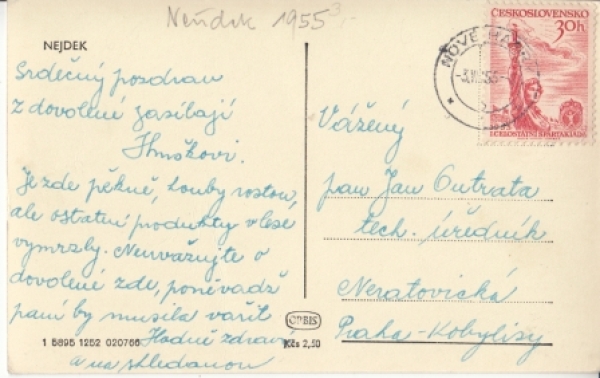 Neudek 1955
3,-
NEJDEK
Srdečný pozdrav
z dovolené zasílají
Hruškovi.
Je zde pěkně, houby rostou,
ale ostatní produkty v lese
vymrzly. Neuvažujte o
dovolené zde, poněvadž
paní by musila vařit
Hodně zdraví
a na shledanou
1 5895 1252 020766
ORBIS
Kčs 2,50
ČESKOSLOVENSKO
30h
1955
I. CELOSTÁTNÍ SPARTAKIÁDA
NOVÉ
-3.VII.55-
Vážený
pan Jan Outrata
tech. úředník
Neratovická
Praha-Kobylisy